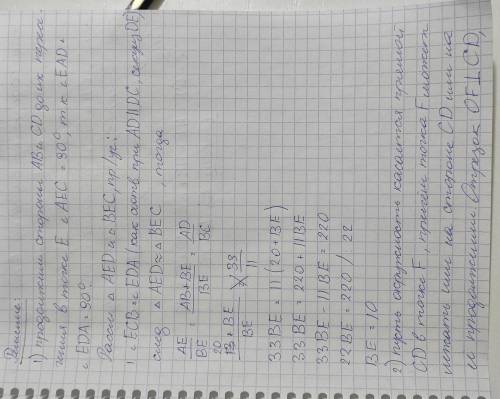 Решение:
1) продолжим стороны AB и CD до их пере-
чения в точке E ∠AEC = 90°, т к ∠EAD +
∠EDA = 90°.
Рассм △ AED и △ BEC, пр/уг:
1 ∠ECB = ∠EDA (как соотв. при AD||DC, секущ DE)
след △AED ≈ △ BEC, тогда
AE/BE = AB+BE/BE = AD/BC
20 + BE/BE = 33/11
33BE = 11 (20 + BE)
33BE = 220 + 11BE
33BE - 11BE = 220
22BE = 220 / 22
BE = 10
2) пусть окружность касается прямой
CD в точке F, причем точка F может
лежать или на стороне CD или на
её продолжении. Отрезок OF⊥CD,